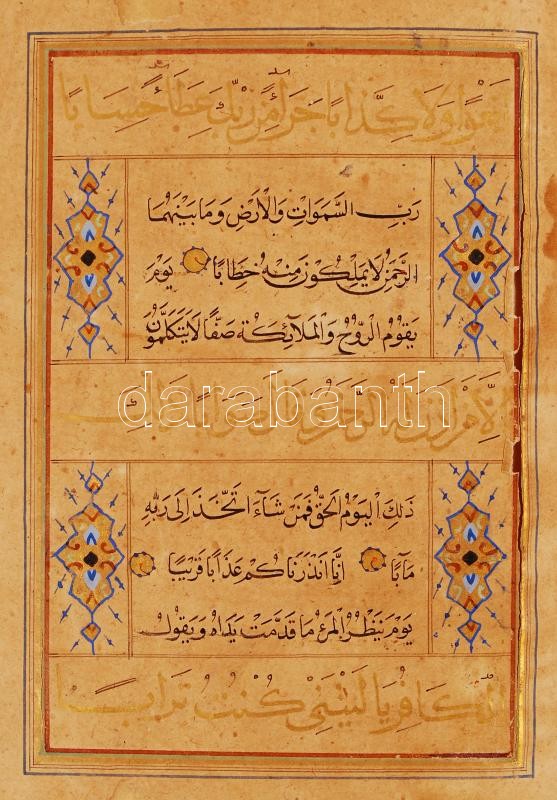 لغوا ولا كذابا جزاء من ربك عطاء حسابا
رَبِّ السَّمَوَاتِ وَالْأَرْضِ وَمَا بَيْنَهُمَا
الرَّحْمَنُ لَا يَمْلِكُونَ مِنْهُ خِطَابًا يَوْمَ
يَقُومُ الرُّوحُ وَالْمَلَائِكَةُ صَفًّا لَا يَتَكَلَّمُونَ
إلا من أذن له الرحمن وقال صوابا
darabanth
ذَلِكَ الْيَوْمُ الْحَقُّ فَمَنْ شَاءَ اتَّخَذَ إِلَى رَبِّهِ
مَآبًا إِنَّا أَنْذَرْنَاكُمْ عَذَابًا قَرِيبًا
يَوْمَ يَنْظُرُ الْمَرْءُ مَا قَدَّمَتْ يَدَاهُ وَيَقُولُ
الكافر يا ليتني كنت ترابا